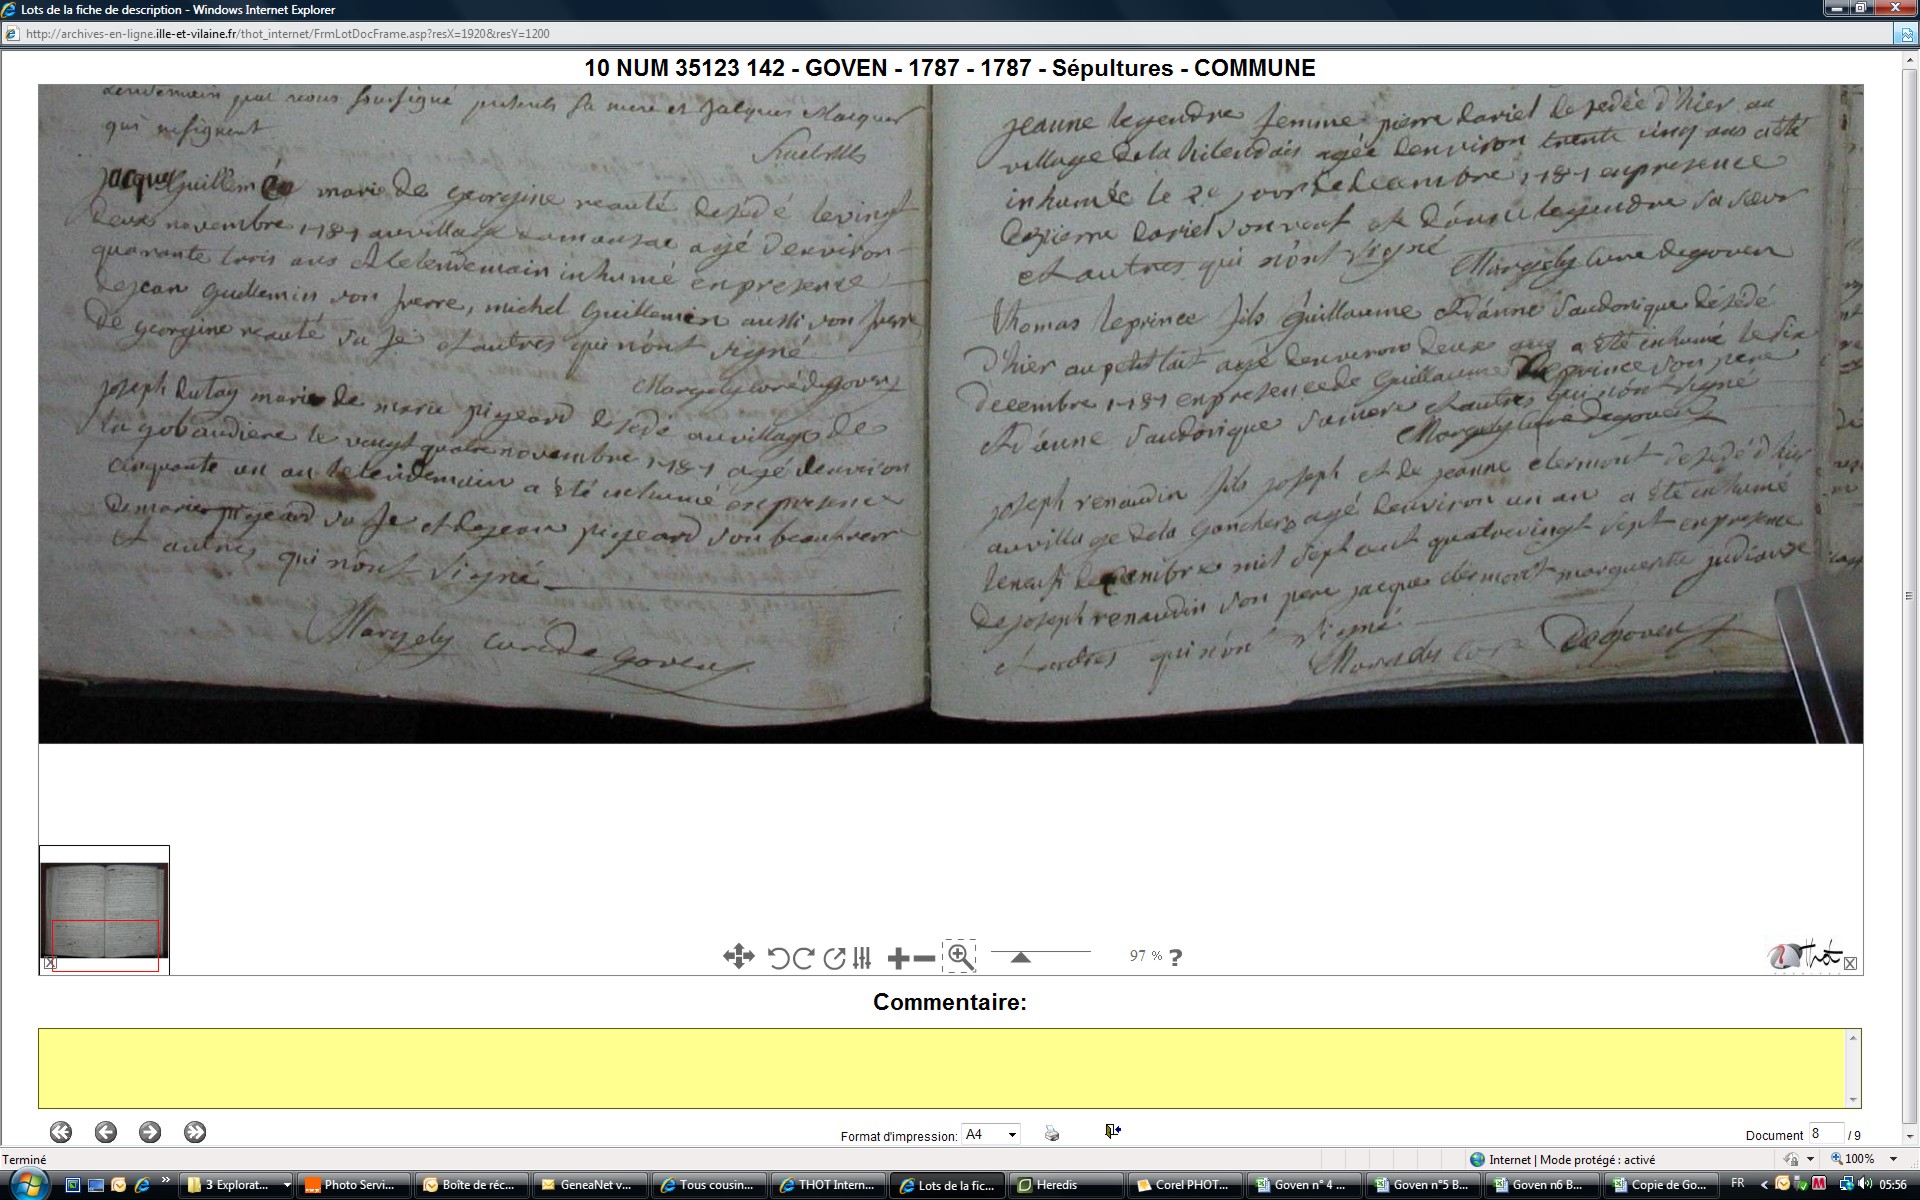 Lots de la fiche de description - Windows Internet Explorer
http://archives-en-ligne.ille-et-vilaine.fr/thot_internet/FrmLotDocFrame.asp?resX=1920&resY=1200
10 NUM 35123 142 - GOVEN - 1787 - 1787 - Sépultures - COMMUNE
lendemain par nous soussigné presents sa mere et Jacques
qui ne signent
jacque guillem mari de georgine reauté desédé le vingt
deux novembre 1787 au village agé denviron
quarante trois ans et le lendemain inhumé en presence
de jean guillemin son frerre, michel guillemin aussi son frerre
de georgine reauté sa fe et autres qui n'ont signé
Margely curé de goven
joseph dutay mari de marie pigeard desédé au village de
la gobaudiere le vingt quatre novembre 1787 agé denviron
cinquante un an le lendemain a été inhumé en presence
de marie pigeard sa fe et de jean pigeard son beau frerre
et autres qui n'ont signé
Margely curé de Goven
jeanne legendre femme pierre dariel desedée d'hier au
village de la agée denviron trente cinq ans a été
inhumée le 2e jour de decembre 1787 en presence
de pierre dariel son et d'anne legendre sa sœur
et autres qui n'ont signé
Margely curé de goven
thomas leprince fils guillaume et d'anne saudorique désédé
d'hier au petit agé denviron deux ans a été inhumé le six
decembre 1787 en presence de guillaume leprince son pere
et d'anne saudorique sa mere et autres qui n'ont signé
Margely curé de goven
joseph renaudin fils joseph et de jeanne clermont desédé d'hier
au village de la agé denviron un an a été inhumé
le neuf decembre mil sept cent quatre vingt sept en presence
de joseph renaudin son pere jacque clermont marguerite
et autres qui n'ont signé
Margely curé de Goven
97 % ?
Thot
Commentaire:
Format d'impression: A4
Document 8 / 9
Terminé
Internet | Mode protégé : activé
100%
3 Explorat...
Photo Servi...
Boîte de réc...
GeneaNet v...
Tous cousin...
THOT Intern...
Lots de la fic...
Heredis
Corel PHOT...
Goven n° 4 ...
Goven n°5 B...
Goven n6 B...
Copie de Go...
FR
05:56